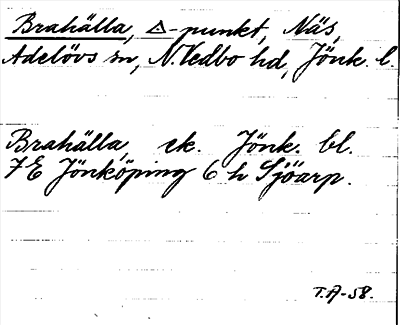 Brahälla, △-punkt, Näs,
Adelövs sn, N. Vedbo hd, Jönk. l.
Brahälla, ek. Jönk. bl.
7E Jönköping 6 h Sjöarp.
T.A-58.